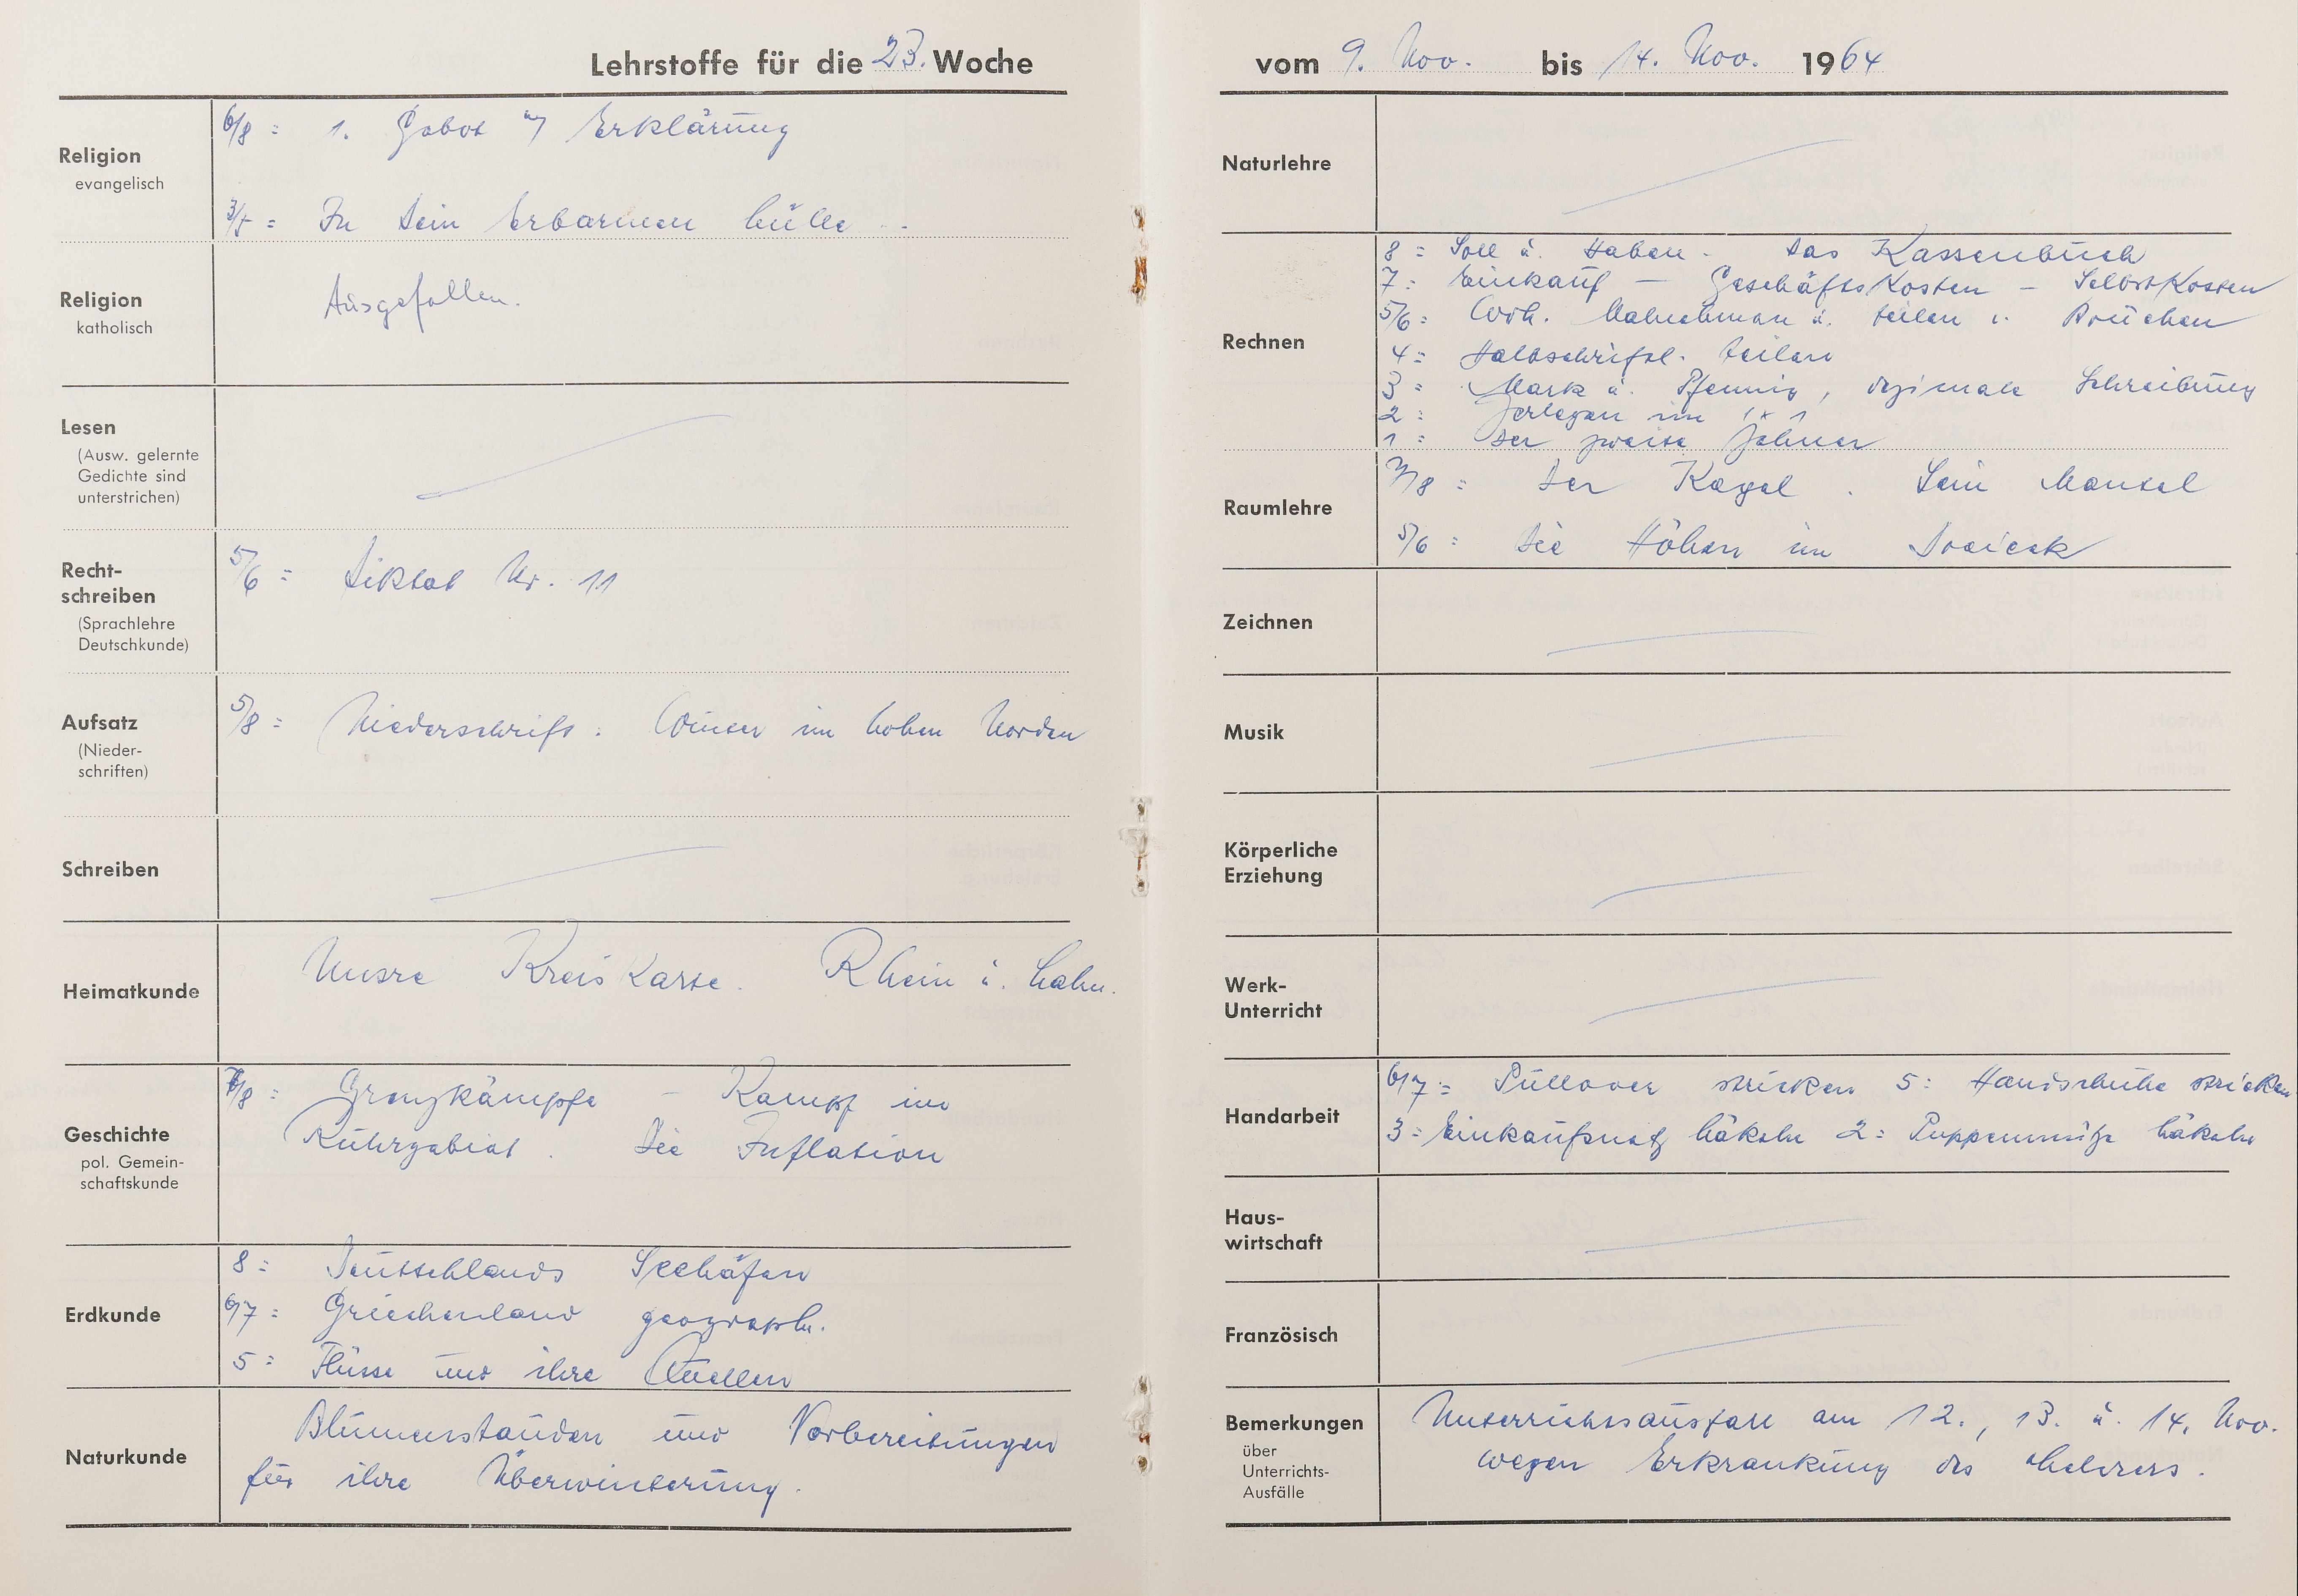 Lehrstoffe für die 23. Woche
Religion
evangelisch
6/8 = 1. Gebot m Erklärung
3/5 = In dein Erbarmen hülle ..
Religion
katholisch
Ausgefallen.
Lesen
(Ausw. gelernte
Gedichte sind
unterstrichen)
Recht-
schreiben
(Sprachlehre
Deutschkunde)
5/6 = Diktat Nr. 11
Aufsatz
(Nieder-
schriften)
5/8 = Niederschrift: Winter im hohen Norden
Schreiben
Heimatkunde
Unsre Kreiskarte. Rhein u. Lahn.
Geschichte
pol. Gemein-
schaftskunde
7/8 = Grenzkämpfe – Kampf im
Ruhrgebiet. Die Inflation
Erdkunde
8 = Deutschlands Seehäfen
6/7 = Griechenland geograph.
5 = Flüsse und ihre Quellen
Naturkunde
Blumenstauden und Vorbereitungen
für ihre Überwinterung.
vom 9. Nov. bis 14. Nov. 1964
Naturlehre
Rechnen
8 = Soll u. Haben - Das Kassenbuch
7 = Einkauf – Geschäftskosten – Selbstkosten
5/6 = Wdh. Malnehmen u. teilen v. Brüchen
4 = Halbschriftl. teilen
3 = Mark u. Pfennig, dezimale Schreibung
2 = Zerlegen im 1x1
1 = Der zweite Zehner
Raumlehre
7/8 = Der Kegel. Sein Mantel
5/6 = Die Höhen im Dreieck
Zeichnen
Musik
Körperliche
Erziehung
Werk-
Unterricht
Handarbeit
6/7 = Pullover stricken 5: Handschuhe stricken
3 = Einkaufsnetz häkeln 2 = Puppenmütze häkeln
Haus-
wirtschaft
Französisch
Bemerkungen
über
Unterrichts-
Ausfälle
Unterrichtsausfall am 12., 13. u. 14. Nov.
wegen Erkrankung des Lehrers.